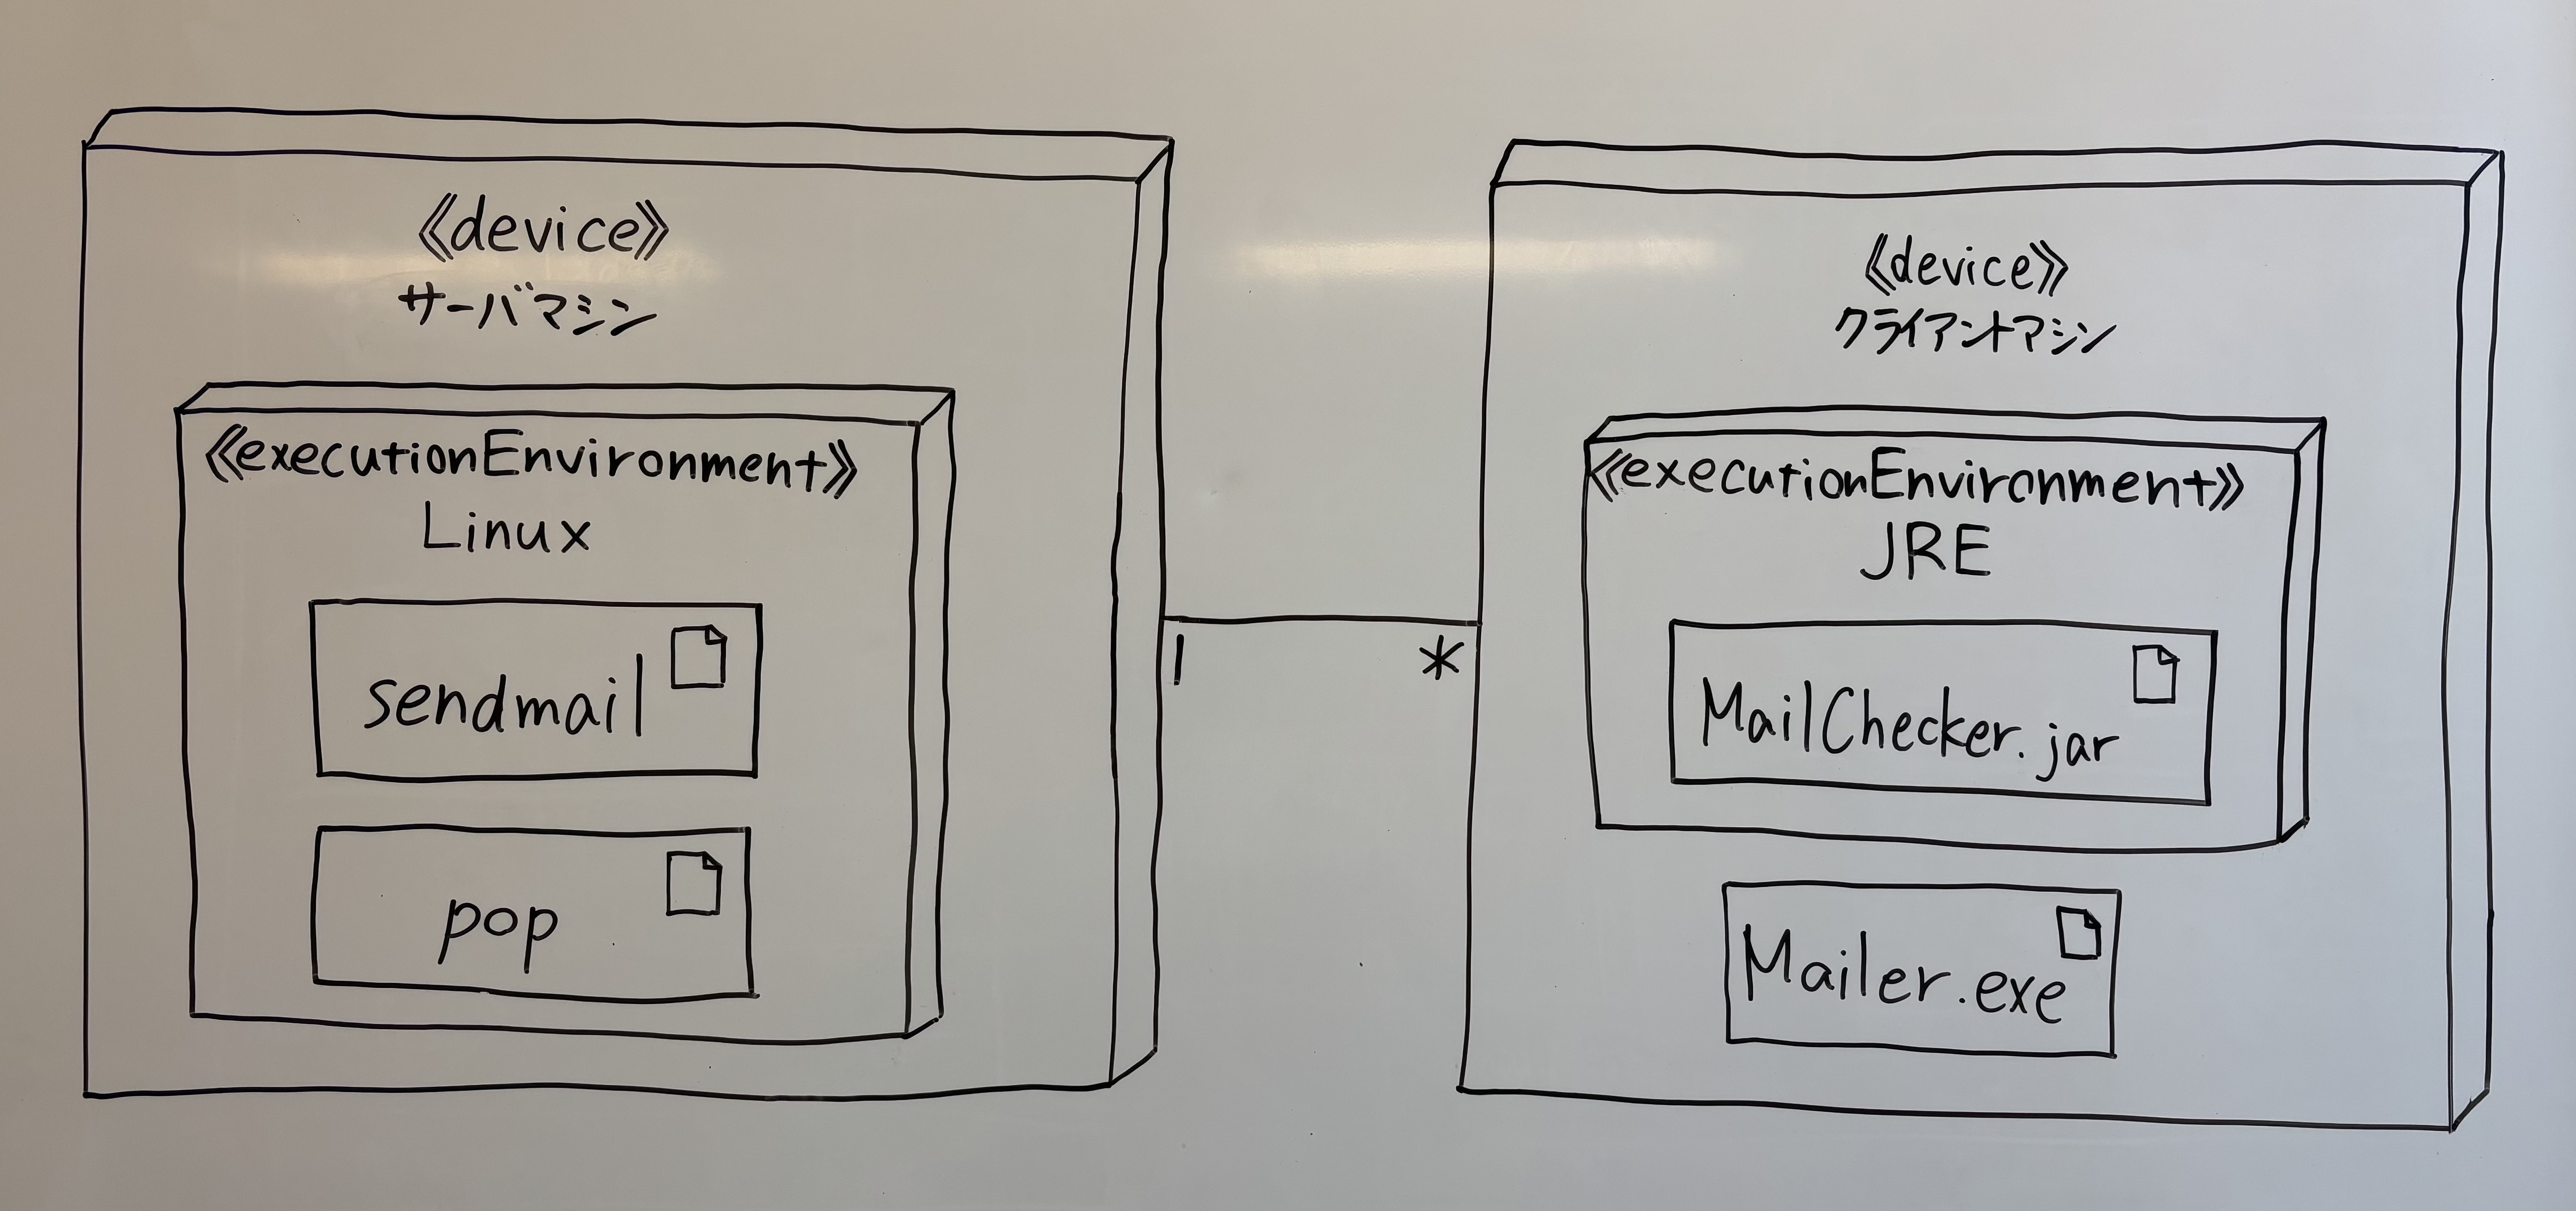 《device》
サーバマシン
《executionEnvironment》
Linux
sendmail
pop
1
*
《device》
クライアントマシン
《executionEnvironment》
JRE
MailChecker.jar
Mailer.exe